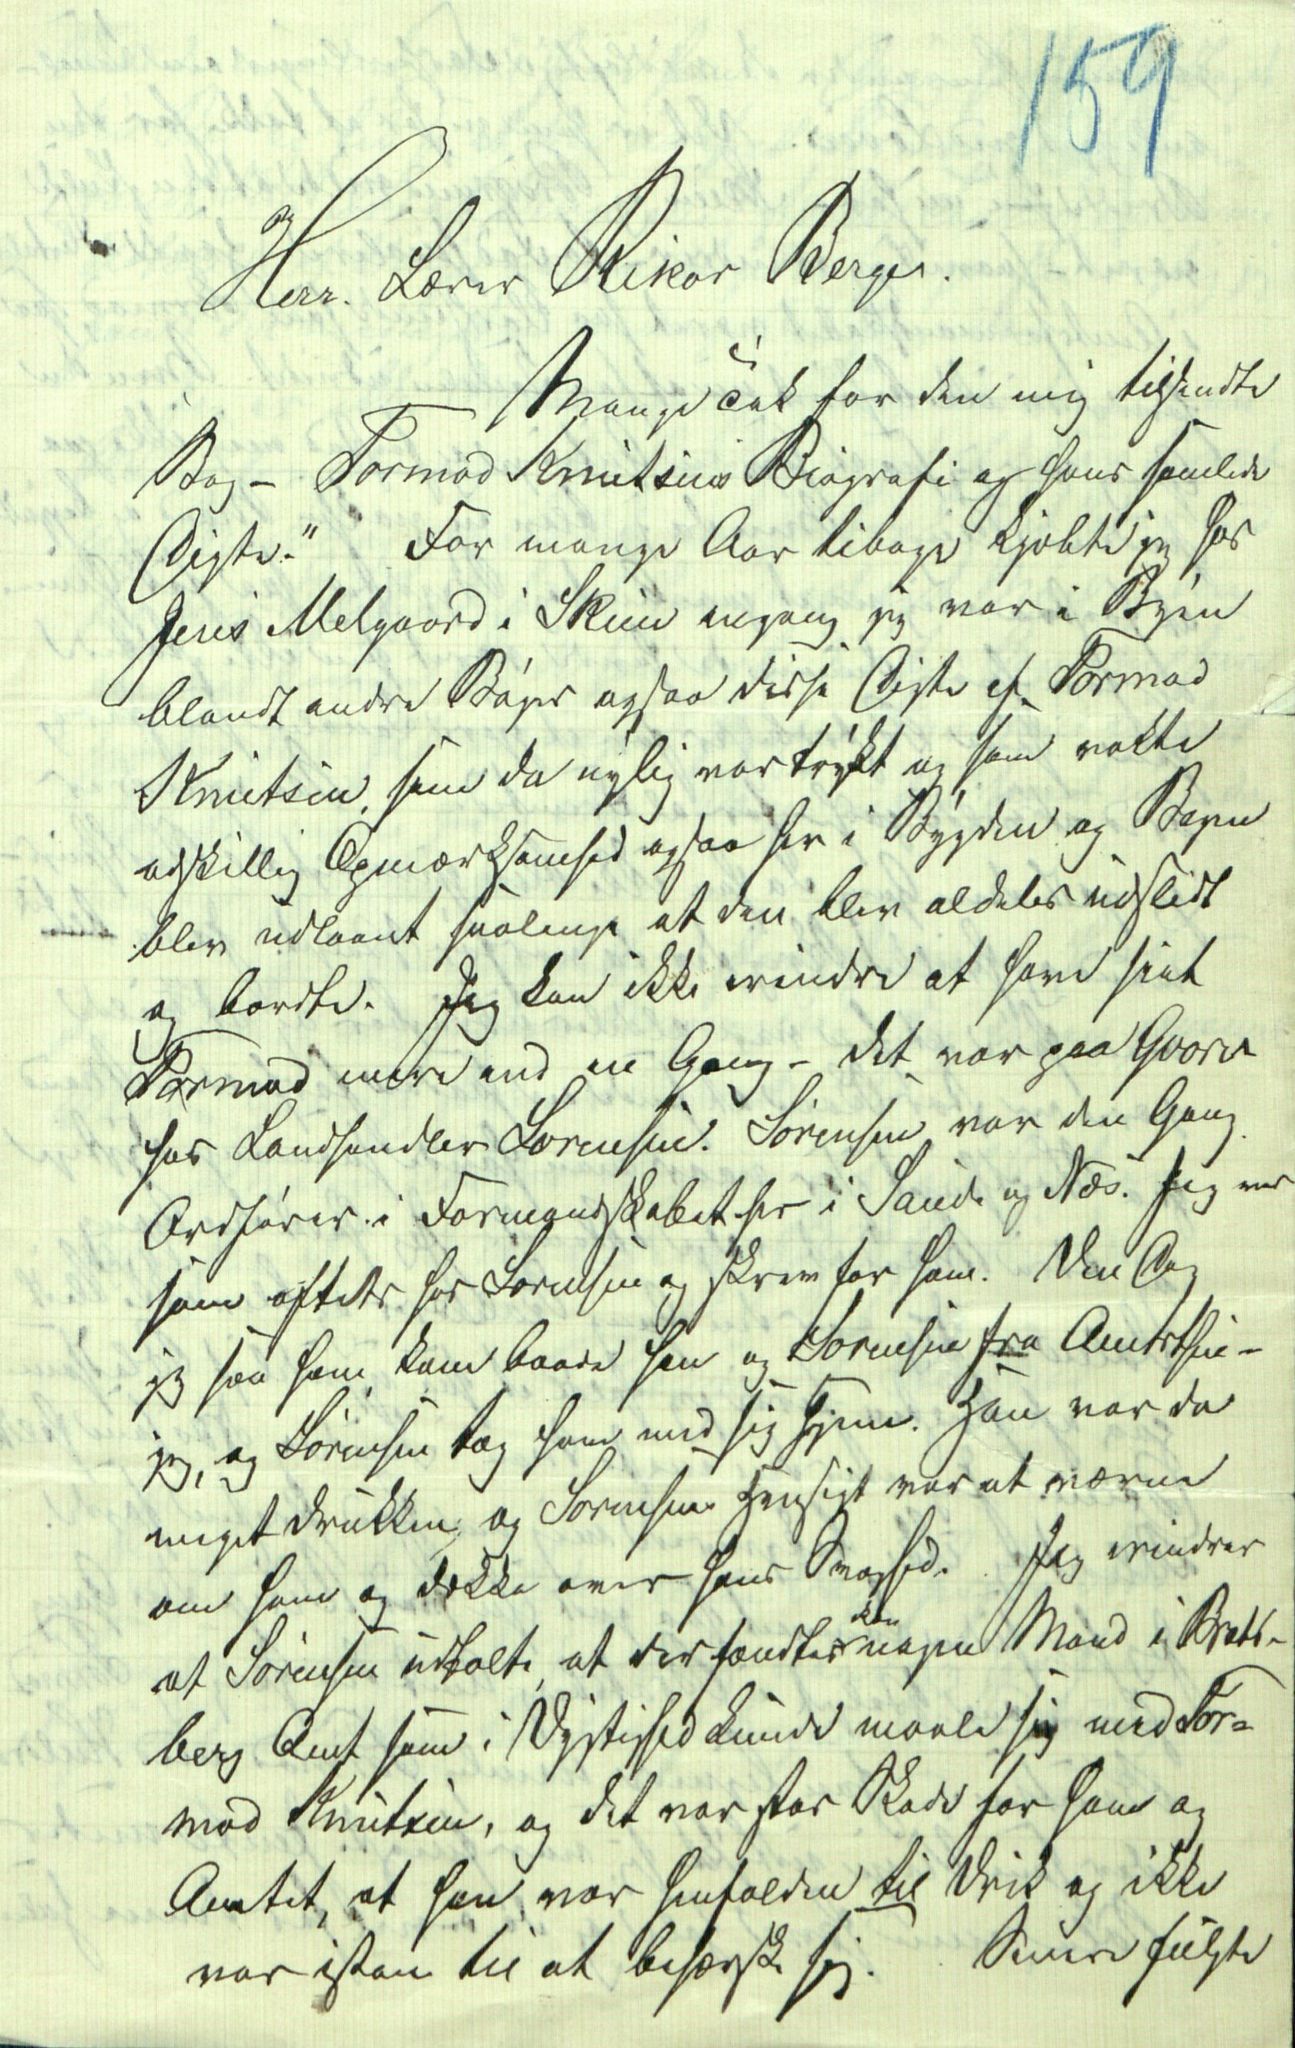 159
Herr. Lærer Rikar Berge.
Mange Tak for den mig tilsendte
Bog – Tormod Knutsens Biografi og hans samlede
Digte." For mange Aar tibage kjøbte jeg hos
Jens Melgaard i Skien engang jeg var i Byen
blandt andre Bøger ogsaa disse Digte af Tormod
Knutsen, som da nylig var trykt og som vakte
adskillig Opmærksomhed ogsaa her i Bygden og Bogen
blev udlaant saalenge at den blev aldeles udslidt
og bordte. Jeg kan ikke erindre at have seet
Tormod mere end en Gang – det var paa Gvarv
hos Landhandler Sørensen. Sørensen var den Gang
Ordfører i Formandskabet her i Saude og Næs. Jeg var
som oftets hos Sørensen og skrev for ham. Den Dag
jeg saa ham kom baade han og Sørensen fra Amtsthin-
jeg, og Sørensen tog ham med sig hjem. Han var da
meget drukken, og Sørensens Hensigt var at værne
om ham og dække over hans Svaghed. Jeg erindrer
at Sørensen udtalte, at der fandtes nogen Mand i Brats-
berg Amt som i Dygtighed kunde maale sig med Tor-
mod Knutsen, og det var stor Skade for ham og
Amtet, at han var henfalden til Drik og ikke
var istan til at beherske sig. Senere fulgte